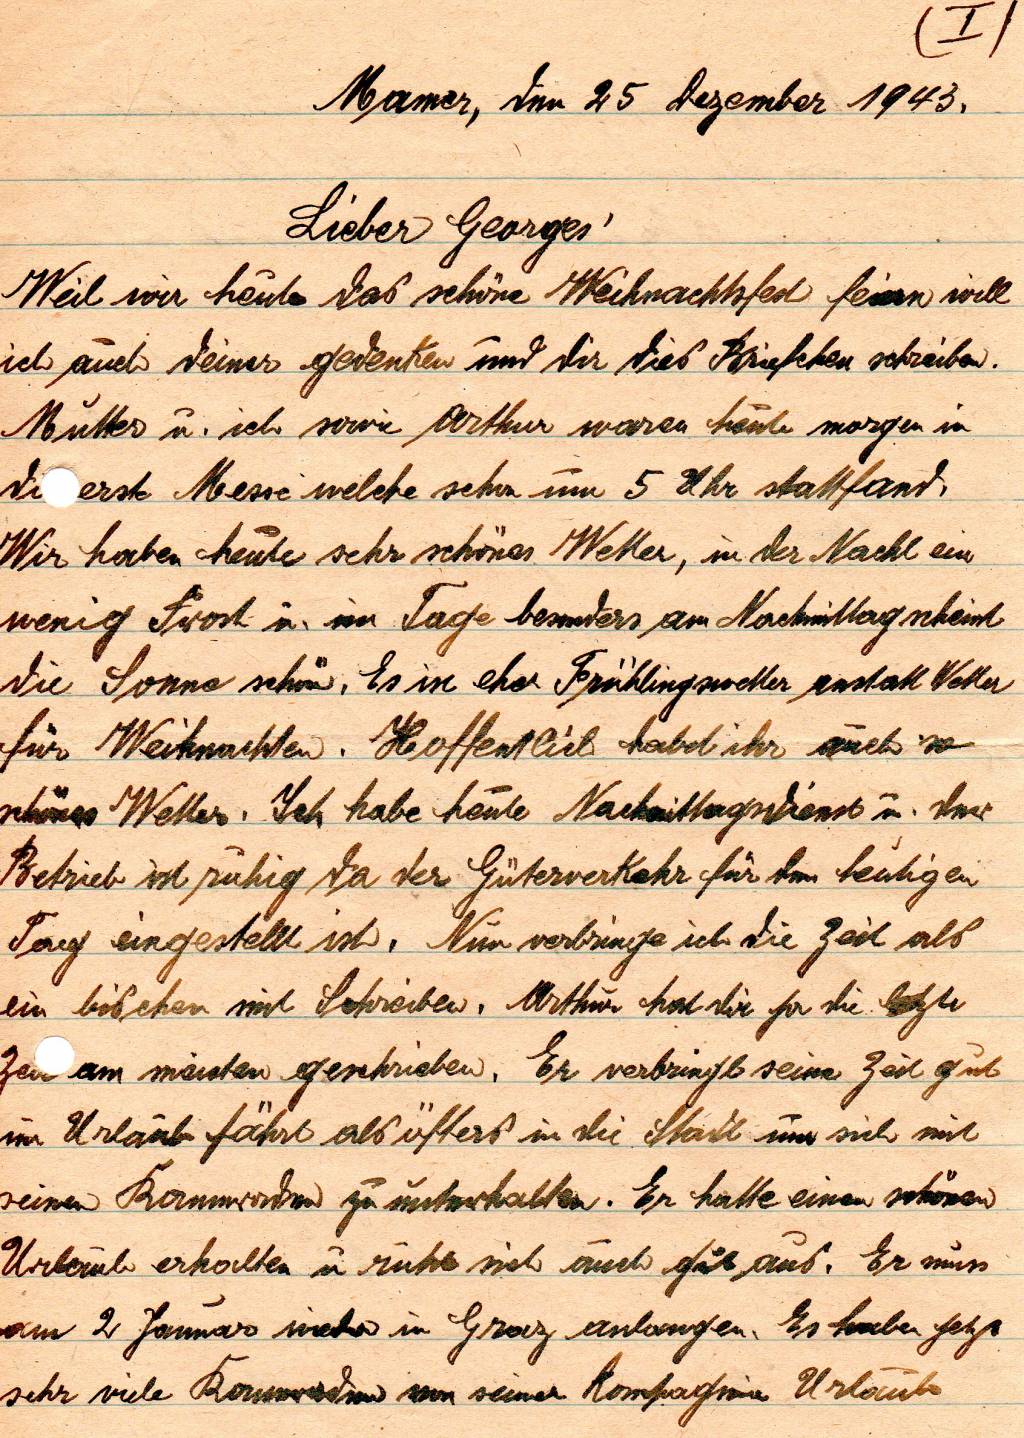 (I)
Mamer, den 25 Dezember 1943.
Lieber Georges'
Weil wir heute das schöne Weihnachtsfest feiern will
ich auch deiner gedenken und dir dies Briefchen schreiben.
Mutter u. ich sowie Arthur waren heute morgen in
di erste Messe welche schon um 5 Uhr stattfand.
Wir haben heute sehr schönes Wetter, in der Nacht ein
wenig Frost u. im Tage besonders am Nachmittag scheint
die Sonne schön. Es ist eher Frühlingswetter anstatt Wetter
für Weihnachten. Hoffentlich habt ihr auch so
schönes Wetter. Ich habe heute Nachmittagsdienst u. der
Betrieb ist ruhig da der Güterverkehr für den heutigen
Tag eingestellt ist. Nun verbringe ich die Zeit als
ein bischen mit Schreiben. Arthur hat dir ja die letzte
Zeit am meisten geschrieben. Er verbringt seine Zeit gut
im Urlaub fährt als öfters in die Stadt um sich mit
seinen Kameraden zu unterhalten. Er hatte einen schönen
Urlaub erhalten u ruht sich auch gut aus. Er muss
am 2 Januar wieder in Graz anlangen. Es haben jetzt
sehr viele Kameraden von seiner Kompagnie Urlaub